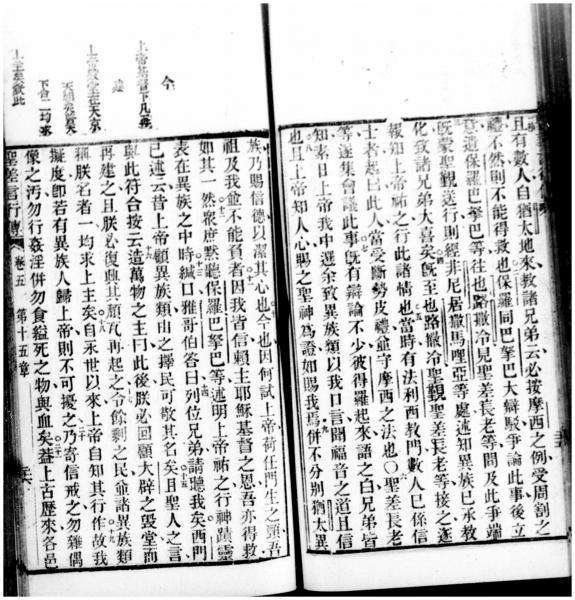 且有數人自猶太地來教諸兄弟云必按摩西之例受周割之
禮不然則不能得救也保羅同巴拏巴大辯駁爭論此事後立
意遣保羅巴拏巴等往也路撒冷見聖差長老等問及此爭端
既蒙聖覲送行則經非尼居撒馬哩亞等處述知異族已承教
化致諸兄弟大喜矣旣至也路撒冷聖覲聖差長老等接之遂
報知上帝祐之行此諸情也當時有法利西教門數人已係信
士者起曰此人當受斷勢皮禮並守摩西之法也○聖差長老
等遂集會議此事旣有辯論不少彼得羅起來語之曰兄弟皆
知素日上帝我中選余致異族類以我口言聞福音之道且信
也且上帝知人心賜之聖神為證如賜我焉併不分別猶太異
今
上帝基督下凡
上帝殿堂在天京
天朝
上主矣欽此
族乃賜信德以潔其心也今也因何試上帝荷任門生之頸吾
祖及我並不能負者因我皆信賴主耶穌基督之恩吾亦得救
如其一然眾庶默聽保羅巴拏巴等述明上帝祐之行神蹟靈
表在異族之中時緘口雅哥伯答曰列位兄弟請聽我矣西門
已述云昔上帝顧異族類由之擇民可敬其名矣且聖人之言
與此符合按云造萬物之主曰此後朕必回顧大辟之毀堂而
再建之且朕必復興其頹瓦再起之令餘剩之民並諸異族類
稱朕名者一均求上主矣自永世以來上帝自知其行作故我
擬度卽若有異族人歸上帝則不可擾之乃寄信戒之勿雜偶
像之污勿行姦淫併勿食縊死之物與血矣蓋上古歷來各邑
聖差言行傳 卷五 第十五章